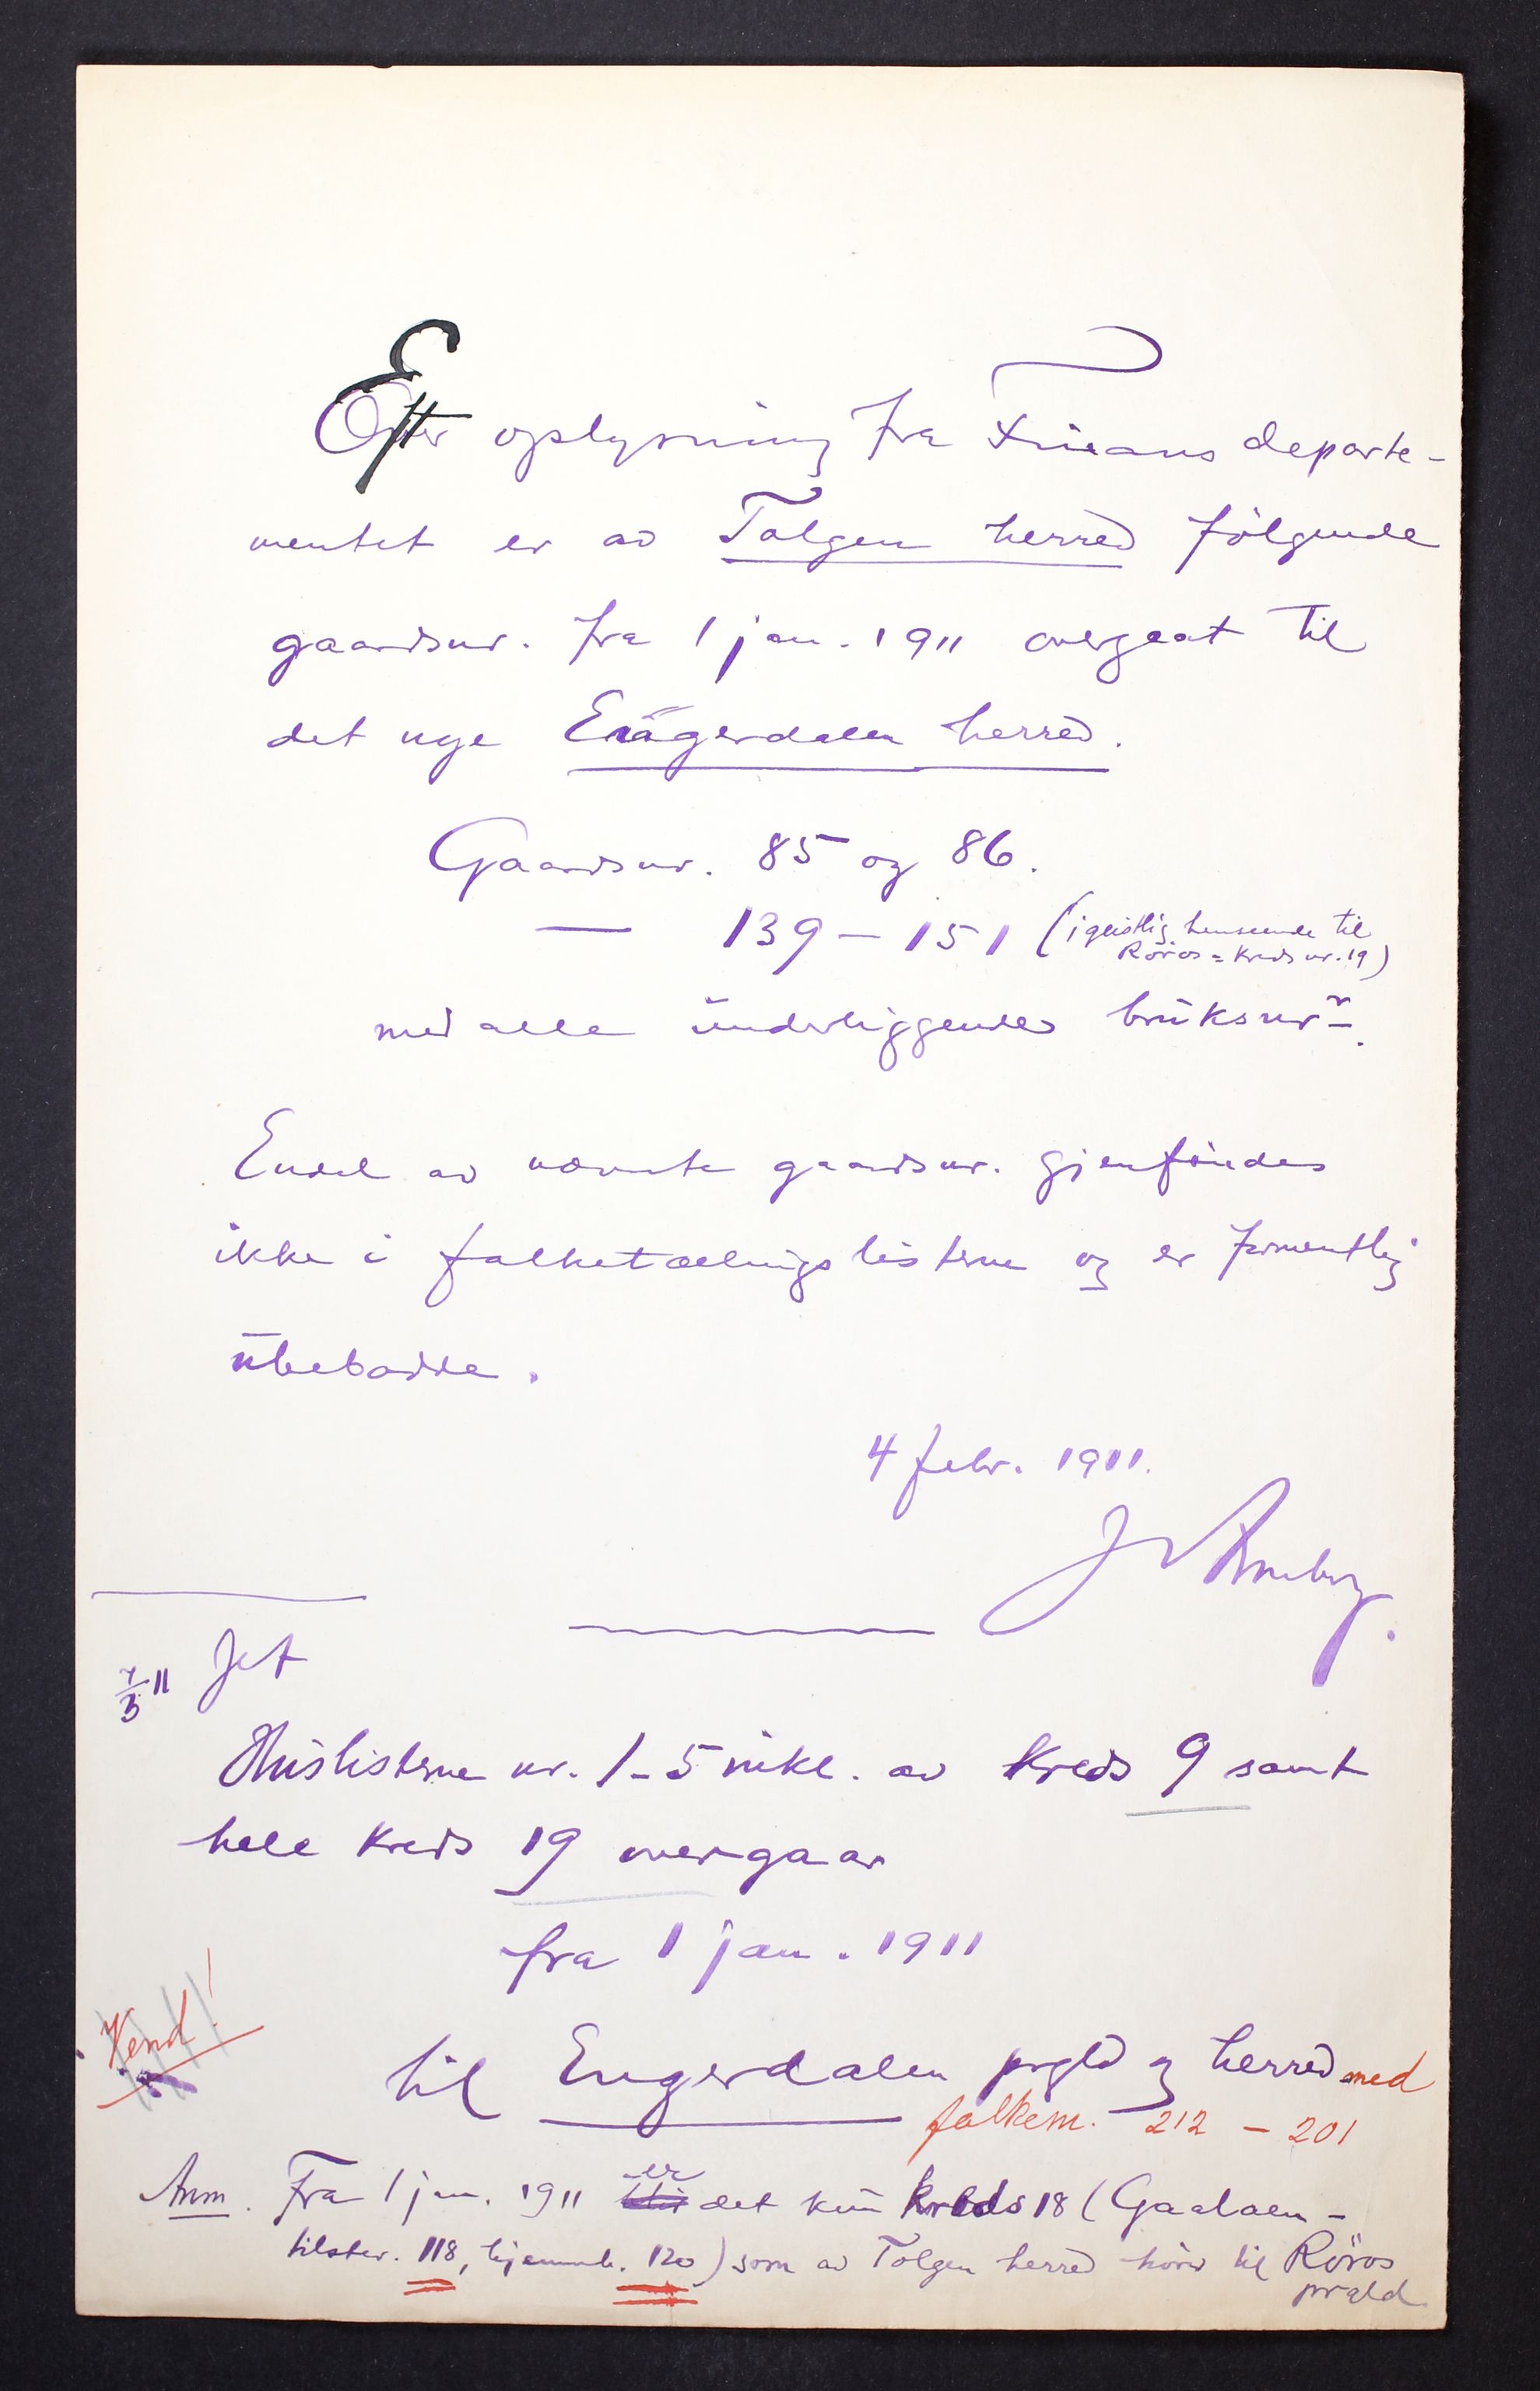 Efter oplysning fra Finansdeparte-
mentet er av Tolgen herred følgende
gaardsnr. fra 1 jan. 1911 overgaat til
det nye Engerdalen herred.
Gaardsnr. 85 og 86.
— 139 – 151 (i geistlig henseende til
Røros = Kreds nr. 19)
med alle underliggende bruksnr.
Endel av nævnte gaardsnr. gjenfindes
ikke i folketællingslisterne og er formentlig
ubebodde.
4 febr. 1911.
7/3 11
Huslisterne nr. 1-5 inkl. av Kreds 9 samt
hele Kreds 19 overgaar
fra 1 jan. 1911
Vend!
til Engerdalen prgld og herred med
folkem. 212 – 201
Anm. Fra 1 jan. 1911 er det kun kreds 18 (Gaalaen –
tilstev. 118, hjemmeh. 120) som av Tolgen herred hører til Røros
prgld.